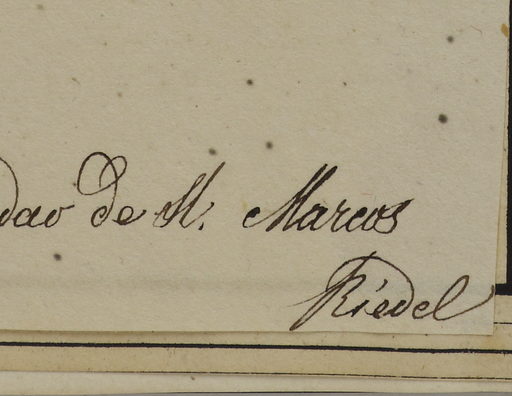 dao de S. Marcos
Riedel